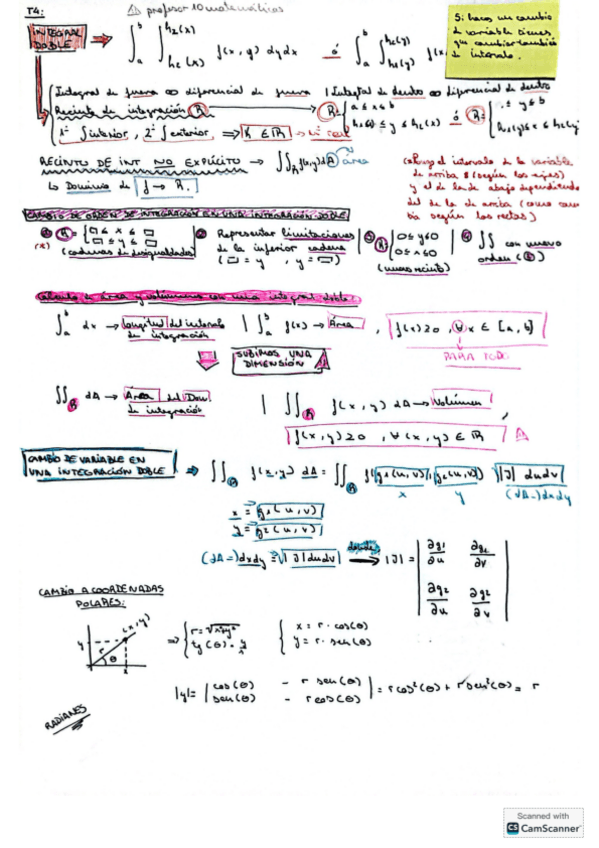 T4:
⚠ profesor10matemáticas
INTEGRAL DOBLE ⇒ ∫_a^b ∫_{h₁(x)}^{h₂(x)} f(x, y) dy dx ó ∫_a^b ∫_{h₁(y)}^{h₂(y)} f(x,
Si haces un cambio
de variable tienes
que cambiar también
el intervalo.
Integral de fuera ∞ diferencial de fuera | Integral de dentro ∞ diferencial de dentro
Recinto de integración (R) → R = { a ≤ x ≤ b
h₁(x) ≤ y ≤ h₂(x) ó R = { ≤ y ≤ b
h₁(y) ≤ x ≤ h₂(y)
1º ∫interior, 2º ∫exterior ⇒ ∈ ℝ → nº real
RECINTO DE INT NO EXPLÍCITO → ∫∫_R f(x,y) dA área
↳ Dominio de f → R.
el intervalo de la variable
de arriba (según los ejes)
y el de la de abajo dependiendo
del de la de arriba (como cam
bia según las rectas)
CAMBIO DE ORDEN DE INTEGRACIÓN EN UNA INTEGRACIÓN DOBLE
① R = { □ ≤ x ≤ □
□ ≤ y ≤ □
(cadenas de desigualdades)
② Representar limitaciones
de la inferior cadena
(□ = y , y = □)
③ R = { □ ≤ y ≤ □
□ ≤ x ≤ □
(nuevo recinto)
④ ∫∫ con nuevo
orden
Cálculo de área y volúmenes con una integral doble
∫_a^b dx → longitud del intervalo
de integración
| ∫_a^b f(x) → Área , f(x) ≥ 0 , ∀ x ∈ [a, b]
PARA TODO
SUBIMOS UNA
DIMENSIÓN
∫∫_R dA → Área del Dom
de integración
| ∫∫_R f(x, y) dA → Volumen ,
f(x, y) ≥ 0 , ∀ (x, y) ∈ R ⚠
CAMBIO DE VARIABLE EN
UNA INTEGRACIÓN DOBLE ⇒ ∫∫_R f(x,y) dA = ∫∫_R f(g₁(u,v), g₂(u,v)) |J| du dv
x y (dA→) dx dy
x = g₁(u, v)
y = g₂(u, v)
(dA→) dx dy = |J| du dv donde → |J| = | ∂g₁/∂u ∂g₁/∂v
∂g₂/∂u ∂g₂/∂v |
CAMBIO A COORDENADAS
POLARES:
y (x, y) r θ x
⇒ { r = √x²+y²
tg(θ) = y/x
{ x = r · cos(θ)
y = r · sen(θ)
|J| = | cos(θ) - r sen(θ)
sen(θ) - r cos(θ) | = r cos²(θ) + r sen²(θ) = r
RADIANES
Scanned with
CS CamScanner